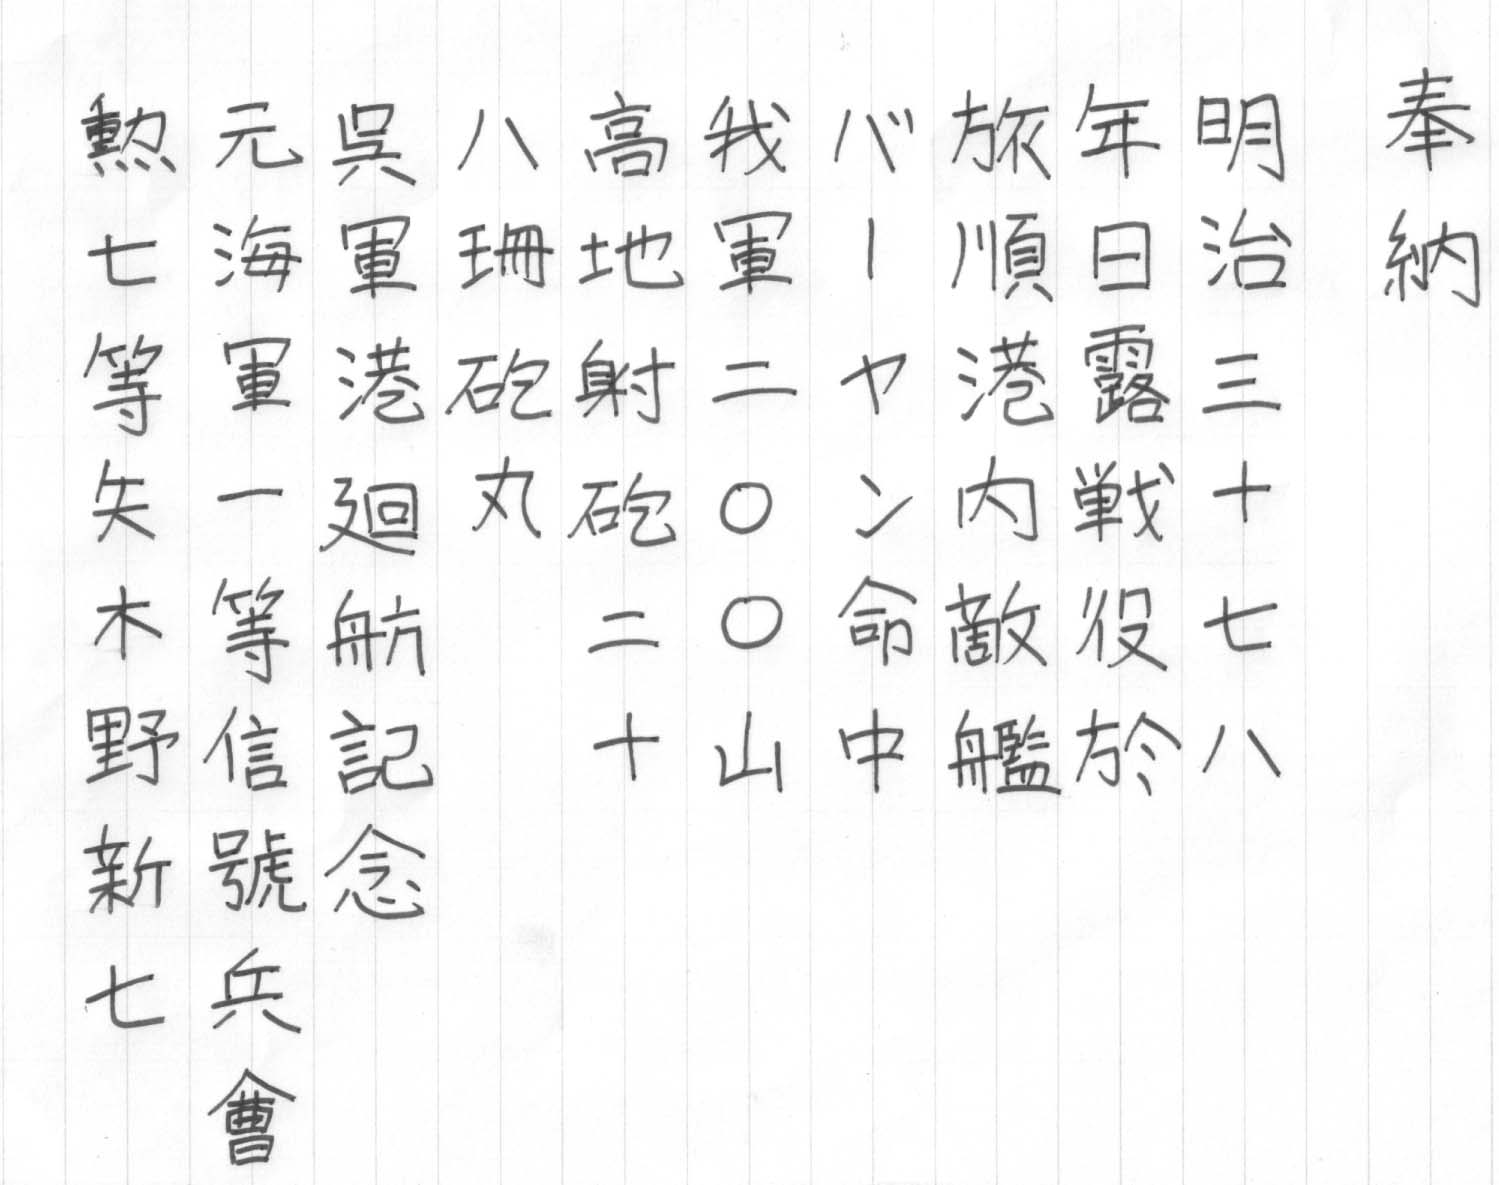 奉納
明治三十七八
年日露戦役於
旅順港内敵艦
バーヤン命中
我軍二〇〇山
高地射砲二十
八珊砲丸
呉軍港廻航記念
元海軍一等信號兵會
勲七等矢木野新七